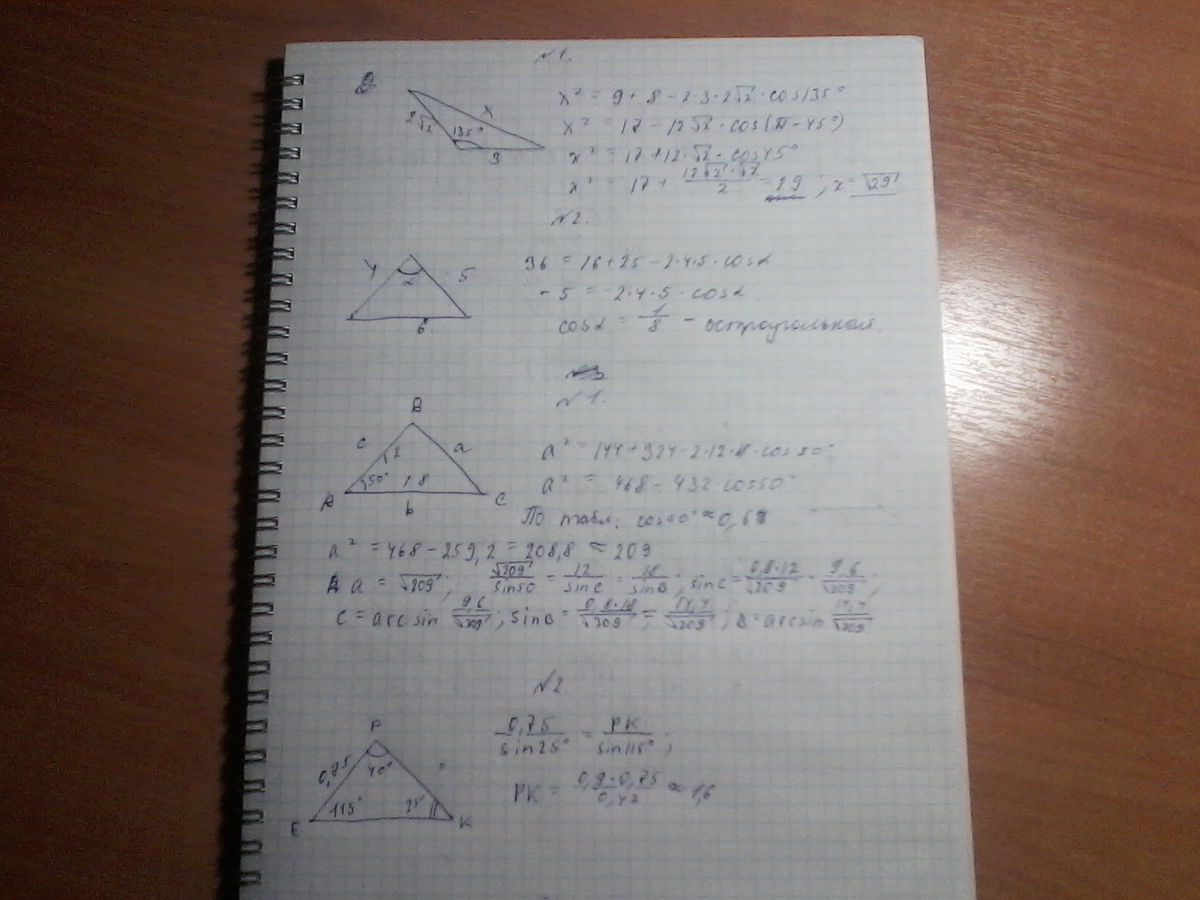 №1.
2√2 135° x 3
x² = 9 + 8 - 2·3·2√2 · cos135°
x² = 17 - 12√2 · cos(π - 45°)
x² = 17 + 12·√2 · cos45°
x² = 17 + 12√2·√2/2 = 29 ; x = √29
№2.
4 α 5 6
36 = 16 + 25 - 2·4·5 · cosα
-5 = -2·4·5 · cosα
cosα = 1/8 - остроугольный.
№1.
B c a 12 50° 18 A b C
a² = 144 + 324 - 2·12·18·cos50°
a² = 468 - 432·cos50°
По табл. cos50° ≈ 0,6
a² = 468 - 259,2 = 208,8 ≈ 209
a = √209 ; √209/sin50 = 12/sinC = 18/sinB ; sinC = 0,8·12/√209 = 9,6/√209 ;
C = arcsin 9,6/√209 ; sinB = 0,8·18/√209 = 14,4/√209 ; B = arcsin 14,4/√209
№2
P 0,75 40° 115° 25° E K
0,75/sin25° = PK/sin115° ;
PK = 0,9·0,75/0,42 ≈ 1,6